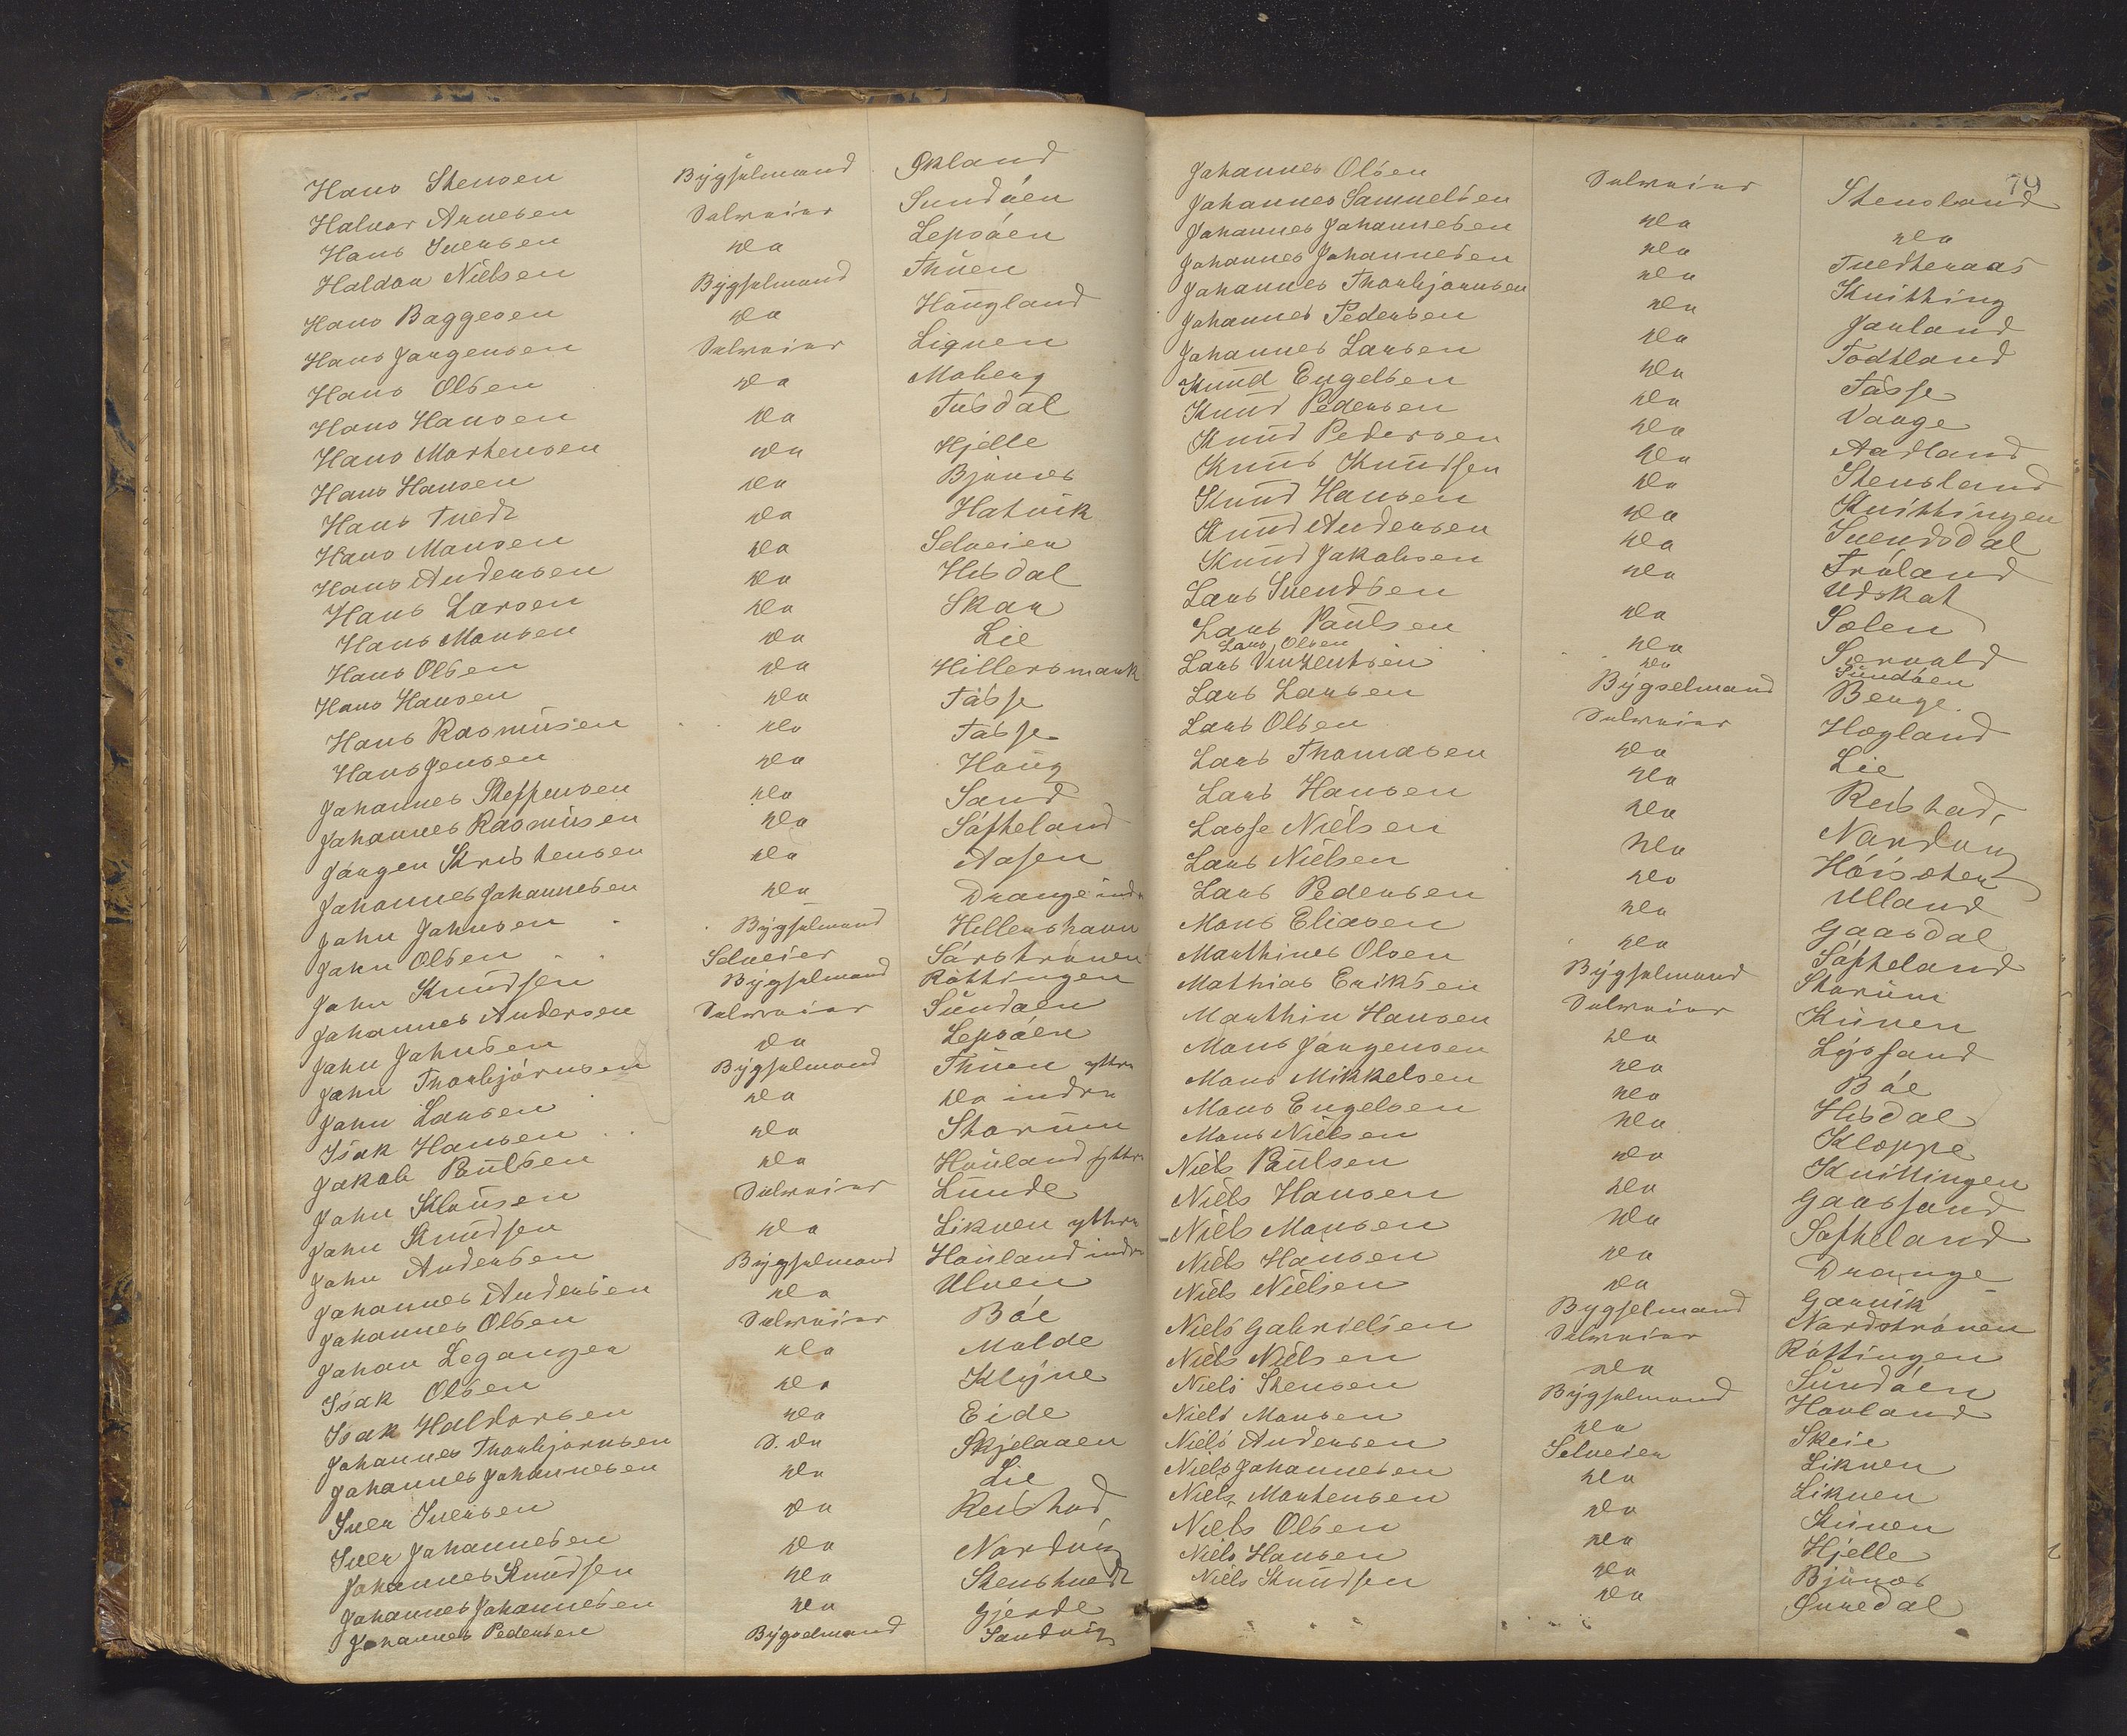 Hans Stensen Bygselmand Økland
Halvor Arnesen Selveier Sundøen
Hans Iversen do Lepsøen
Haldor Nielsen Bygselmand Thuen
Hans Baggesen do Hougland
Hans Jørgensen Selveier Liqnen
Hans Olsen do Moberg
Hans Hansen do Tusdal
Hans Mortensen do Hjelle
Hans Hansen do Bjånes
Hans Tvedt do Hatvik
Hans Monsen do Selveier
Hans Andersen do Hisdal
Hans Larsen do Skar
Hans Monsen do Lie
Hans Olsen do Hillersmark
Hans Hansen do Tøsse
Hans Rasmusen do Tøsse
Hans Jensen do Houg
Johannes Steffensen do Sand
Johannes Rasmusen do Søfteland
Jørgen Kristensen do Aasen
Johannes Johannesen do Drange indr
John Johnsen Bygselmand Hillershavn
John Olsen Selveier Sørstrønen
John Knudsen Bygselmand Røttingen
Johannes Andersen Selveier Sundøen
John Johnsen do Lepsøen
John Thorbjørnsen Bygselmand Thuen ythr
John Larsen do do indre
Isak Hansen do Storum
Jakob Poulsen do Houland ythr
John Klousen Selveier Lunde
John Knudsen do Liknen ythre
John Andersen Bygselmand Houland indr
Johannes Andersen do Ulven
Johannes Olsen Selveier Bøe
Johan Leganger do Molde
Isak Olsen do Klyve
Isak Haldorsen do Eide
Johannes Thorbjornsen S. do Skjelaaen
Johannes Johannesen do Lie
Iver Iversen do Reistad
Iver Johannesen do Nordvig
Johannes Knudsen do Stenstvedt
Johannes Johannesen do Gjerde
Johannes Pedersen Bygselmand Sandvig
79
Johannes Olsen Selveier Stensland
Johannes Samuelsen do do
Johannes Johannesen do Tvedteraas
Johannes Johannesen do Knitting
Johannes Thorbjørnsen do Jorland
Johannes Pedersen do Todtland
Johannes Larsen do Tøsse
Knud Engelsen do Vaage
Knud Pedersen do Aadland
Knud Pedersen do Stensland
Knud Knudsen do Knittingen
Knud Hansen do Svendsdal
Knud Andersen do Trøland
Knud Jakobsen do Udskot
Lars Svendsen do Solen
Lars Poulsen do Særvold
Lars Olsen do Sundøen
Lars Vinzentsen Bygselmand Berge
Lars Larsen Selveier Hegland
Lars Olsen do Lie
Lars Thomasen do Reistad
Lars Hansen do Nordvig
Lasse Nielsen do Høisæter
Lars Nielsen do Ulland
Lars Pedersen do Gaasdal
Mons Eliasen do Søfteland
Marthines Olsen Bygselmand Storum
Mathias Eriksen Selveier Kuven
Marthin Hansen do Lyssand
Mons Jørgensen do Bøe
Mons Mikkelsen do Hisdal
Mons Engelsen do Kloppe
Mons Nielsen do Knittingen
Niels Poulsen do Gaassand
Niels Hansen do Søfteland
Niels Monsen do Drange
Niels Hansen do Garvik
Niels Nielsen Bygselmand Nordstrønen
Niels Gabrielsen Selveier Røttingen
Niels Nielsen do Sundøen
Niels Stensen Bygselmand Hovland
Niels Monsen do Skeie
Niels Andersen Selveier Liknen
Niels Johannesen do Liknen
Niels Mortensen do Kuven
Niels Olsen do Hjelle
Niels Hansen do Bjånes
Niels Knudsen do Øvredal